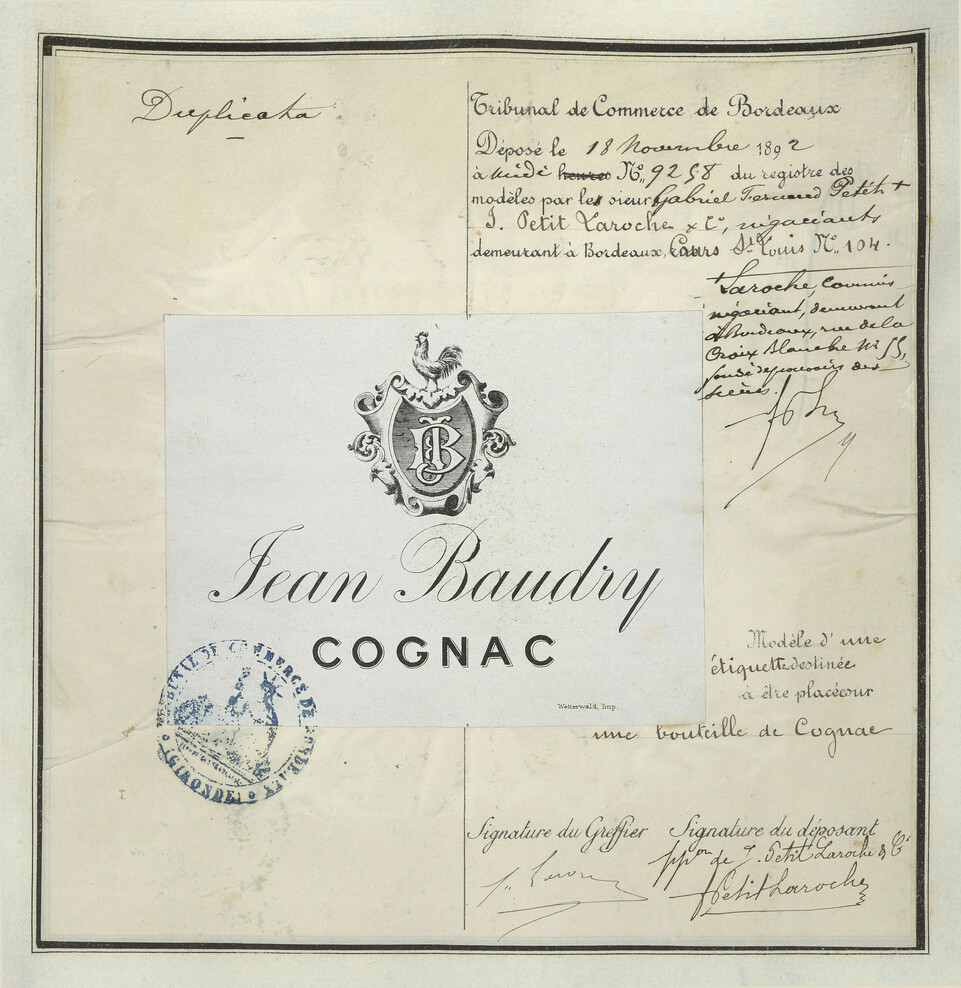 Duplicata
Tribunal de Commerce de Bordeaux
Déposé le 18 Novembre 1892
à midi heures No 9258 du registre des
modèles par les sieur Gabriel Fernand Petit +
J. Petit Laroche & Cie, négociants
demeurant à Bordeaux, Cours St Louis No 104.
+ Laroche, Commis
négociant, demeurant
à Bordeaux, rue de la
Croix Blanche No 55,
fondé de pouvoirs des
sieurs.
JB
Jean Baudry
COGNAC
Wetterwald, Imp.
TRIBUNAL DE COMMERCE DE BORDEAUX
(GIRONDE)
Modèle d'une
étiquette destinée
à être placée sur
une bouteille de Cognac
Signature du Greffier Signature du déposant
ppon de J. Petit Laroche & Cie
Petit Laroche